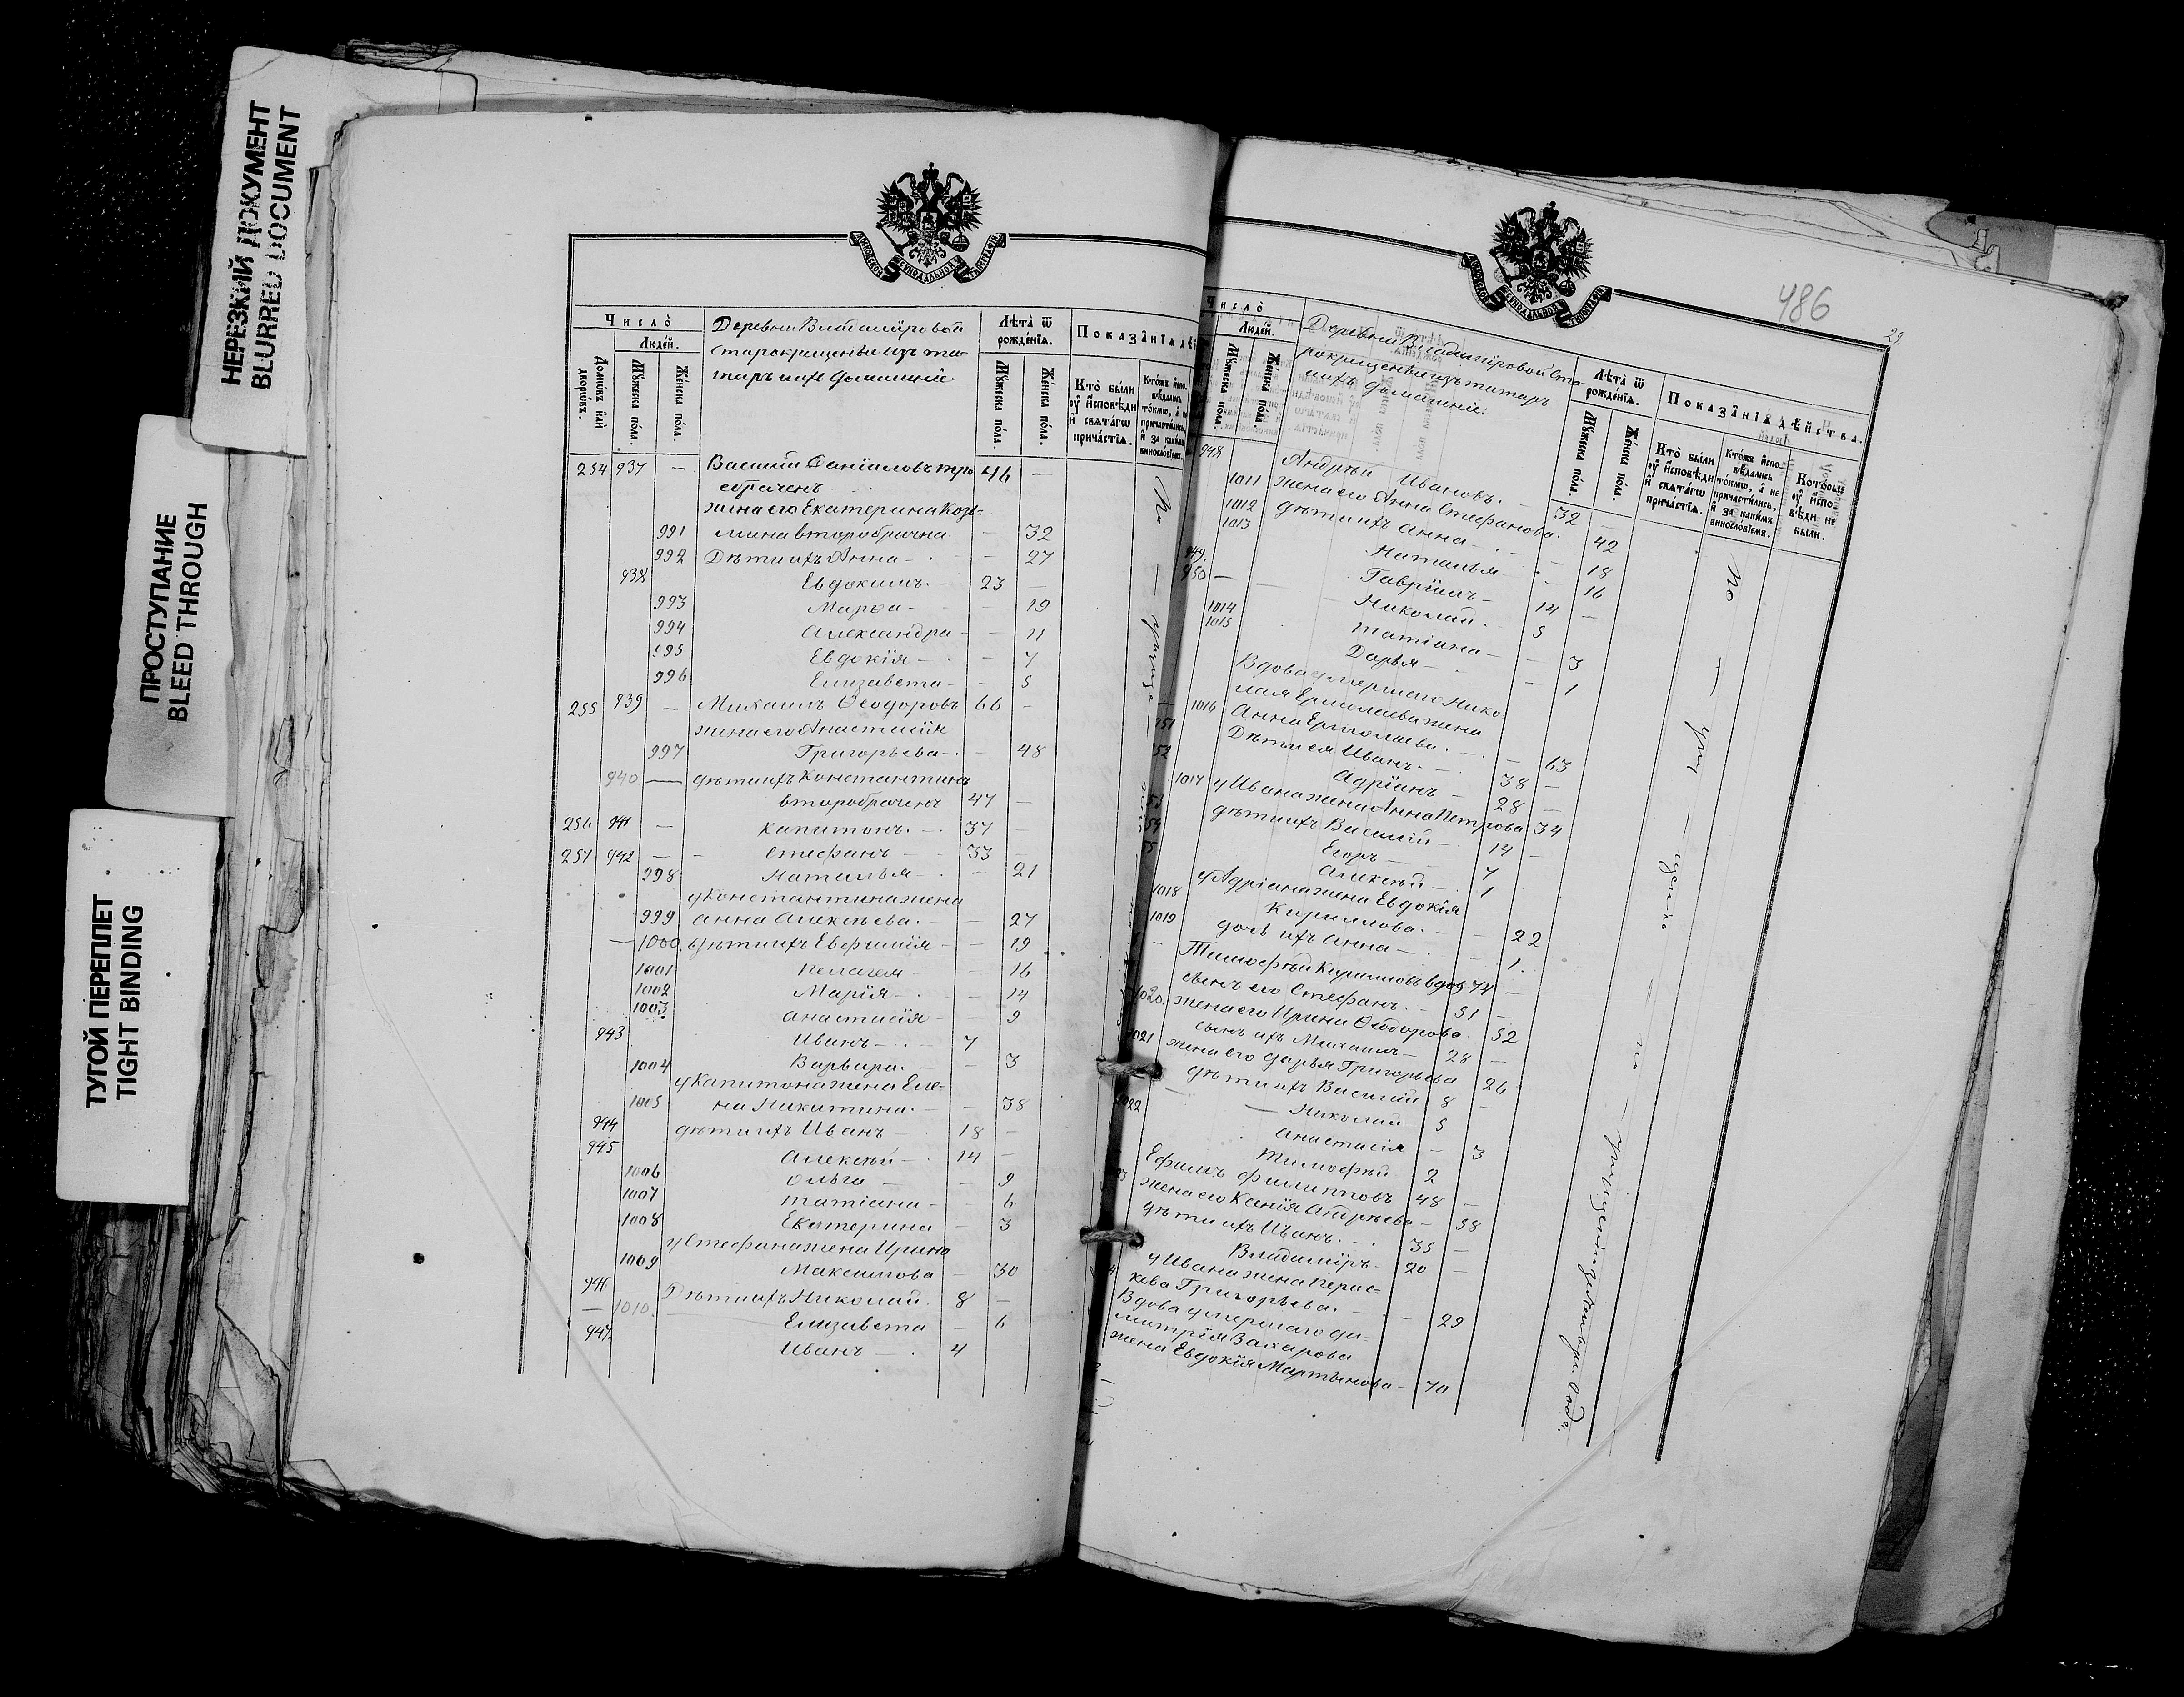 НЕРЕЗКИЙ ДОКУМЕНТ
BLURRED DOCUMENT
ПРОСТУПАНИЕ
BLEED THROUGH
ТУГОЙ ПЕРЕПЛЕТ
TIGHT BINDING
Число̀
Людей.
Домѡвъ илѝ дворѡвъ.
Мꙋжеска пола.
Женска пола.
Деревни Владимiровой
Старокрещеные изъ та-
таръ и ихъ домашнiе
Лѣта̀ ѿ рожденїѧ.
Мꙋжеска пола.
Женска пола.
Показанїѧ
Кто̀ были ᲂу҆ и҆сповѣди и҆ свѧтагѡ причастїѧ.
254 937 — Василiй Данiиловъ тро 46 —
ебраченъ
жена его Екатерина Козь-
991 мина второбрачна. — 32
992 Дѣти ихъ Анна — 27
938 Евдокимъ. — 23 —
993 Марѳа — — 19
994 Александра — — 11
995 Евдокiя — — 7
996 Елизавета — — 5
255 939 — Михаилъ Ѳеодоровъ 66 —
жена его Анастасiя
997 Григорьева — — 48
940 — дѣти ихъ Константинъ
второбраченъ 47 —
256 941 — Капитонъ. — 37 —
257 942 — Стефанъ — 33 —
998 Наталья — — 21
у Константина жена
999 Анна Алексѣева. — 27
1000. дѣти ихъ Евфимiя — — 19
1001 Пелагея — — 16
1002 Марiя — — 14
1003 Анастасiя — — 9
943 Иванъ — 7
1004 Варвара. — — 3
у Капитона жена Еле-
1005 на Никитина. — — 38
944 дѣти ихъ Иванъ — 18 —
945 Алексѣй — 14 —
1006 Ольга — — 9
1007 Татiана — — 6
1008 Екатерина — 3
у Стефана жена Ирина
1009 Максимова — 30
946 Дѣти ихъ Николай. 8 —
1010. Елизавета — 6
947 Иванъ — 4
486
29
Число̀
Людей.
Мꙋжеска пола.
Женска пола.
Деревни Владимiровой Ста
рокрещеные изъ татаръ
и ихъ домашнiе:
Лѣта̀ ѿ рожденїѧ.
Мꙋжеска пола.
Женска пола.
Показанїѧ дѣйства.
Кто̀ были ᲂу҆ и҆сповѣди и҆ свѧтагѡ причастїѧ.
Ктожъ и҆спо-вѣдались то́кмѡ, а҆ не причастились, и҆ за какимъ винословїемъ.
Которые ᲂу҆ и҆спо-вѣди не были.
948 Андрей Ивановъ. — 32 —
1011 жена его Анна Стефанова. 42
1012 дѣти ихъ Анна — — 18
1013 Наталья — 16
949. Гаврiилъ — 14 —
950 — Николай. 5
1014 Татiана — — 3
1015 Дарья — — 1
Вдова умершаго Нико
лая Ермолаева жена
1016 Анна Ермолаева. — — 63
Дѣти ея Иванъ. — 38 —
Адрiанъ — 28 —
1017 у Ивана жена Анна Петрова 34
дѣти ихъ Василiй — 14 —
Егоръ — 7
Алексѣй — 1
у Адрiана жена Евдокiя
1018 Кириллова. — — 22
1019 дочь ихъ Анна — — 1.
Тимофѣй Кириловъ вдов 74 —
сынъ его Стефанъ. — 51 —
1020. жена его Ирина Ѳеодорова. 52
сынъ ихъ Михаилъ — 28 —
1021 жена его Дарья Григорьева 26
дѣти ихъ Василiй 8 —
— Николай 5
1022 Анастасiя — 3
Тимофѣй 2
Ефимъ Филипповъ 48 —
жена его Ксенiя Андреева — 58
дѣти ихъ Иванъ. — 35 —
Владимiръ. — 20 —
у Ивана жена Перас-
кева Григорьева. — — 29
Вдова умершаго Ди-
митрiя Захарова
жена Евдокiя Мартынова — 70